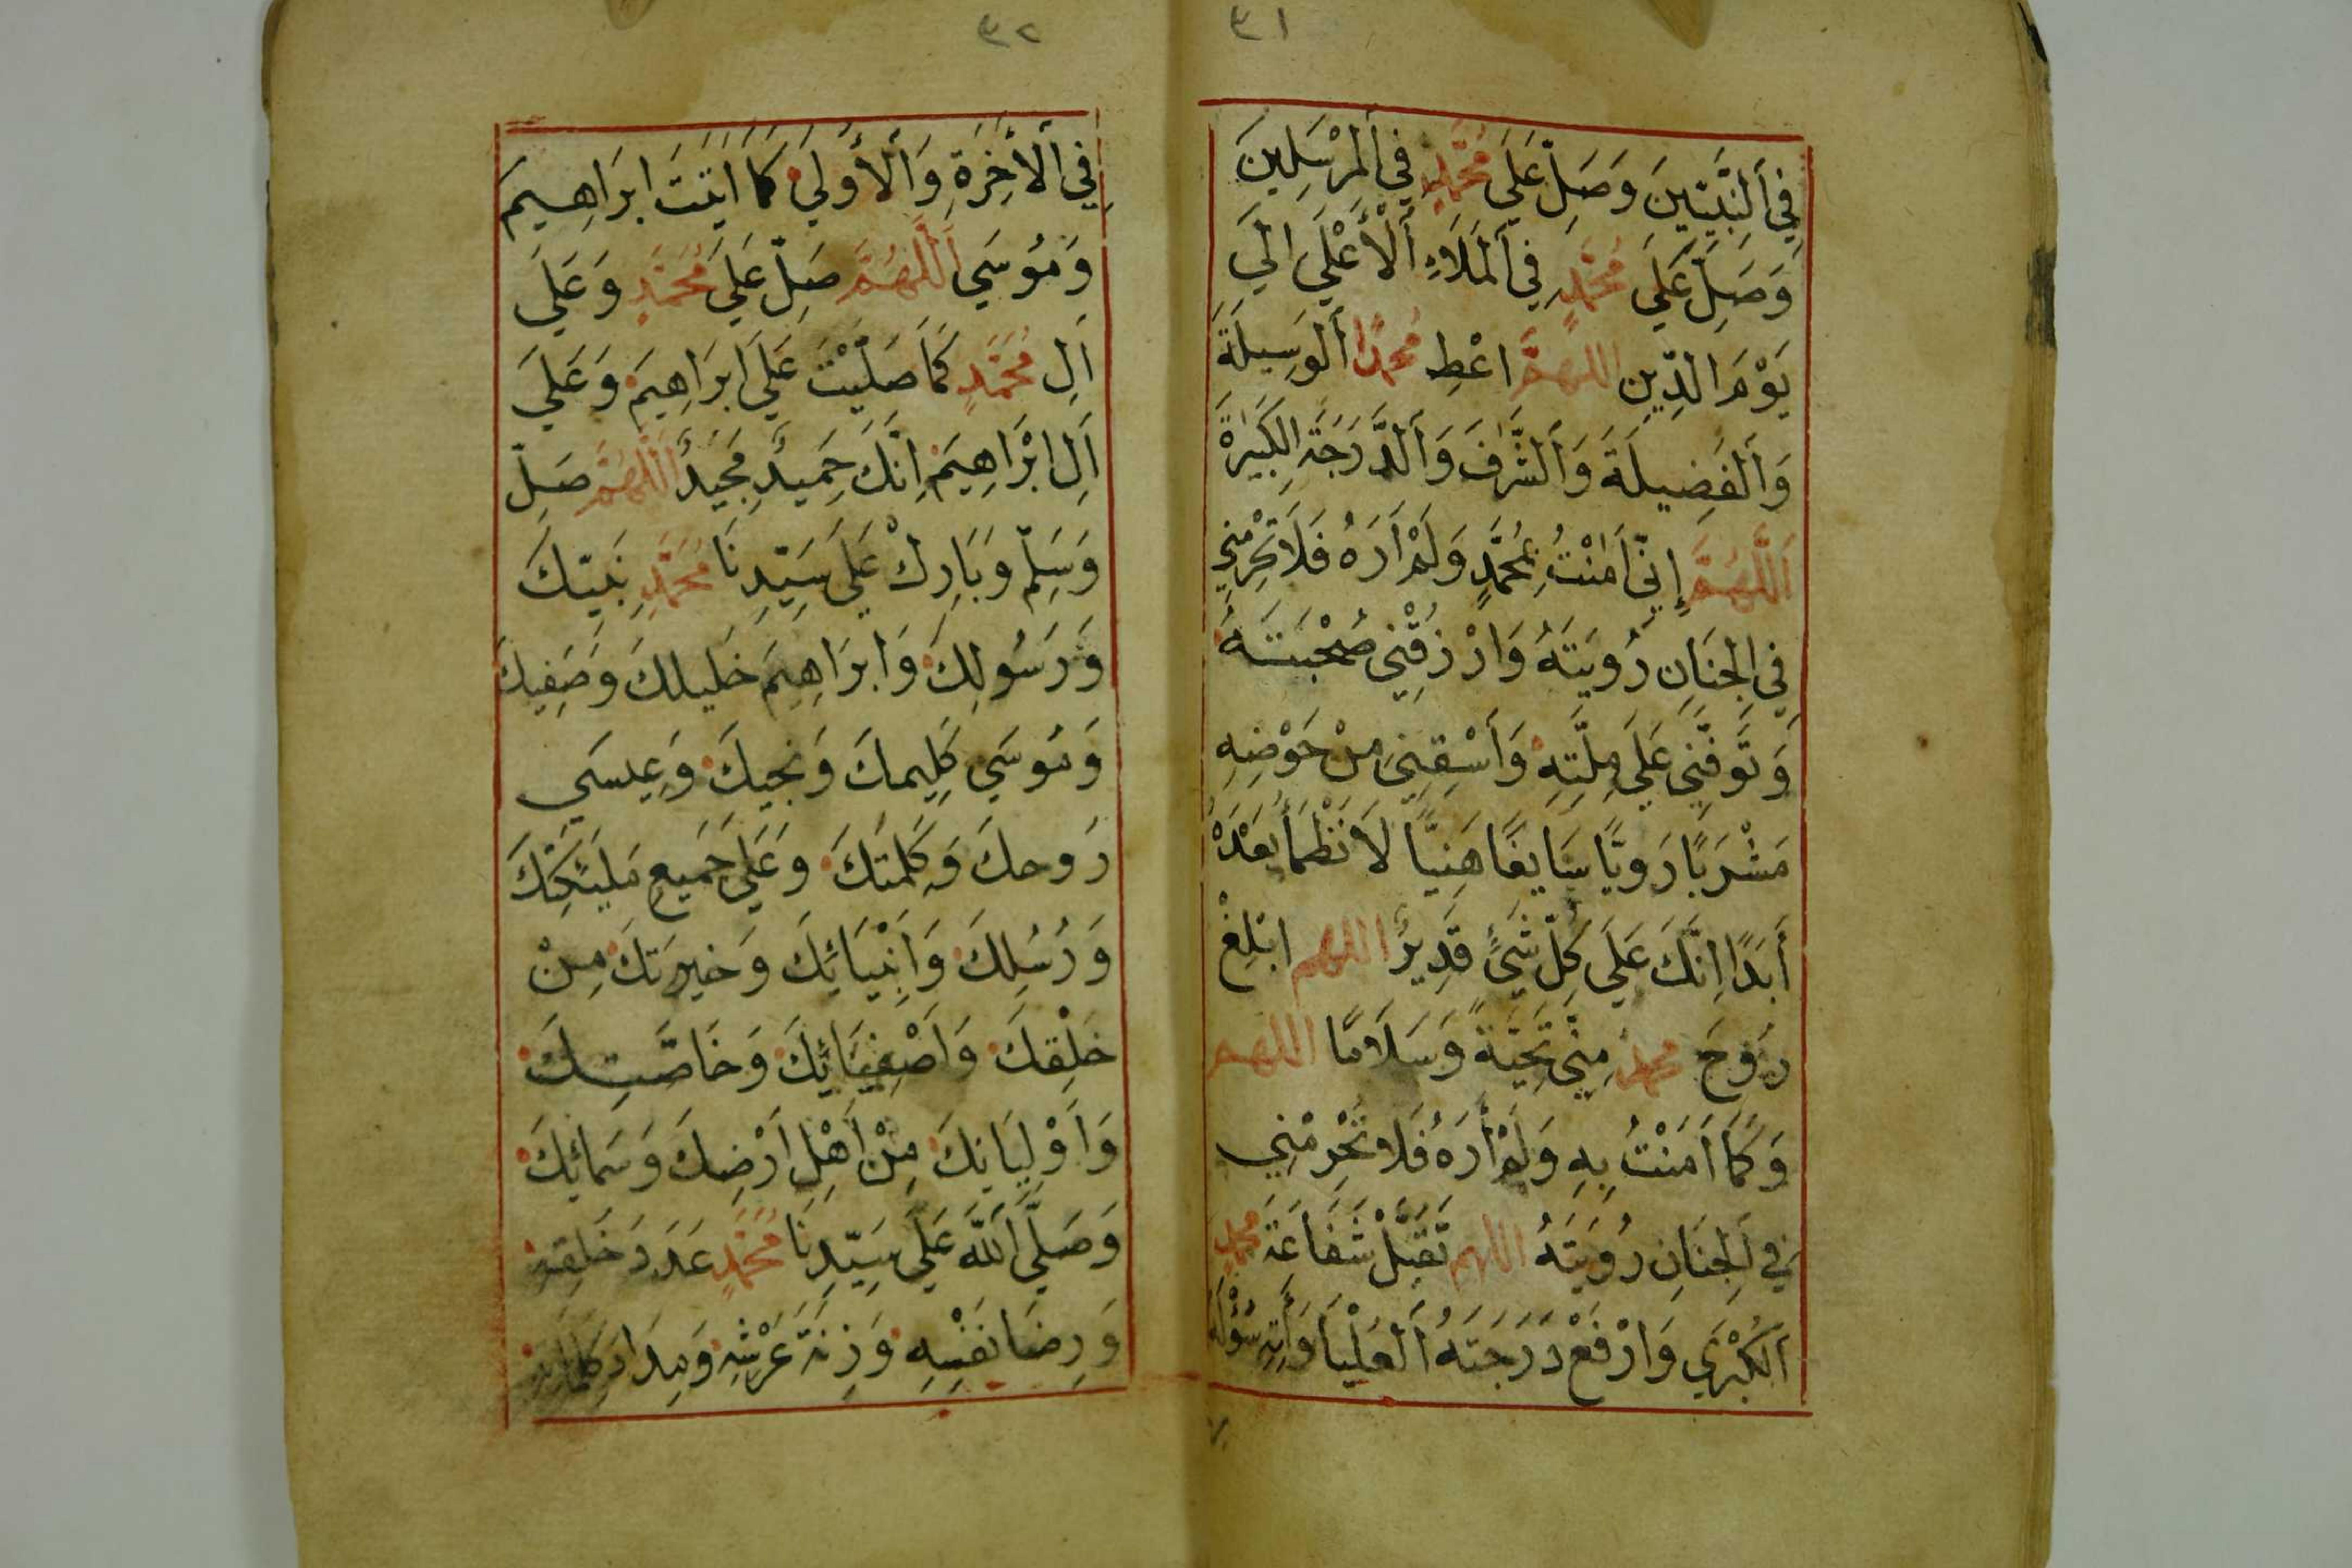 ٣١
فِي اَلنَّبِيّينَ وَصَلِّ عَلَى مُحَمَّدٍ فِي اَلمُرْسَلِينَ
وَصَلِّ عَلَى مُحَمَّدٍ فِي اَلمَلَاءِ اَلْأَعْلَي اِلَي
يَوْمِ الدِّينِ اللهُمَّ اعْطِ مُحَمَّدًا اَلوَسِيلَةَ
وَاَلفَضِيلَةَ وَاَلشَّرَفَ وَاَلدَّرَجَةَ الكَبِيَرةَ
اَللَّهُمَّ إِنّي اَمَنْتُ بِمُحَمَّدٍ وَلَمْ اَرَهُ فَلَا تَحْرِمْنِي
فِي الجِنَانِ رُويَتَهُ وَارْزُقْنِي صُحْبَتَهُ
وَتَوَفَّنِي عَلَي مِلَّتِهِ وَأَسْقِنِي مِنْ حَوْضِهِ
مَشْرَبًا رَوِيًّا سَايغًا هَنِيًّا لَا نَظْمَأُ بَعْدَهُ
أَبَدًا اِنَّكَ عَلَي كُلِّ شَيْءٍ قَدِيرٌ اللهم ابْلِغْ
رُوحَ محمدٍ مِنّي تَحِيَّةً وَسَلَامًا اللهم
وَكَمَا اَمَنْتُ بِهِ وَلَمْ أَرَهُ فَلَا تَحْرِمْنِي
فِي اَلجِنَانِ رُويَتَهُ اللهم تَقَبَّلْ شَفَاعَةَ مُحمدٍ
اَلكُبْرَي وَارْفَعْ دَرَجَتَهُ اَلعُلْيَا وَأَتِهِ سُؤْلَهُ
٣٢
فِي اَلأَخِرَةِ وَاَلأُولَي كَمَا اَتَيْتَ ابرَاهِيمَ
وَمُوسَي اَللهُمَّ صَلِّ عَلَي مُحَمَّدٍ وَعَلَي
اَلِ مُحَمَّدٍ كَمَا صَلَّيْتَ عَلَي ابرَاهِيمَ وَعَلَي
اَلِ ابْرَاهِيمَ اِنَّكَ حَمِيدٌ مَجِيدٌ اَللَّهُمَّ صَلِّ
وَسَلِّمْ وَبَارِكْ عَلَي سَيّدِنَا مُحَمَّدٍ نَبيّكَ
وَرَسُولِكَ وَابرَاهِيمَ خَلِيلكَ وَصَفِيكَ
وَمُوسَي كَلِيمكَ وَنجيكَ وَعِيسَي
رَوحكَ وَكَلِمَتكَ وَعَلَي جَمِيعِ مَلَئكَتِكَ
وَرُسُلِكَ وَاَنْبِيَائِكَ وَخيرَتكَ مِنْ
خَلْقِكَ وَاَصْفِيَائِكَ وَخَاصَّتِكَ
وَاَوْلِيَائكَ مِنْ اَهْلِ اَرْضِكَ وَسَمَائِكَ
وَصَلَّي اَللهَ عَلَي سَيّدِنَا مُحَمَّدٍ عَدَدَ خَلقِهِ
وَرِضَا نَفْسِهِ وَزِنَةَ عَرْشِهِ وَمِدَادَ كَلِمَاتِهِ